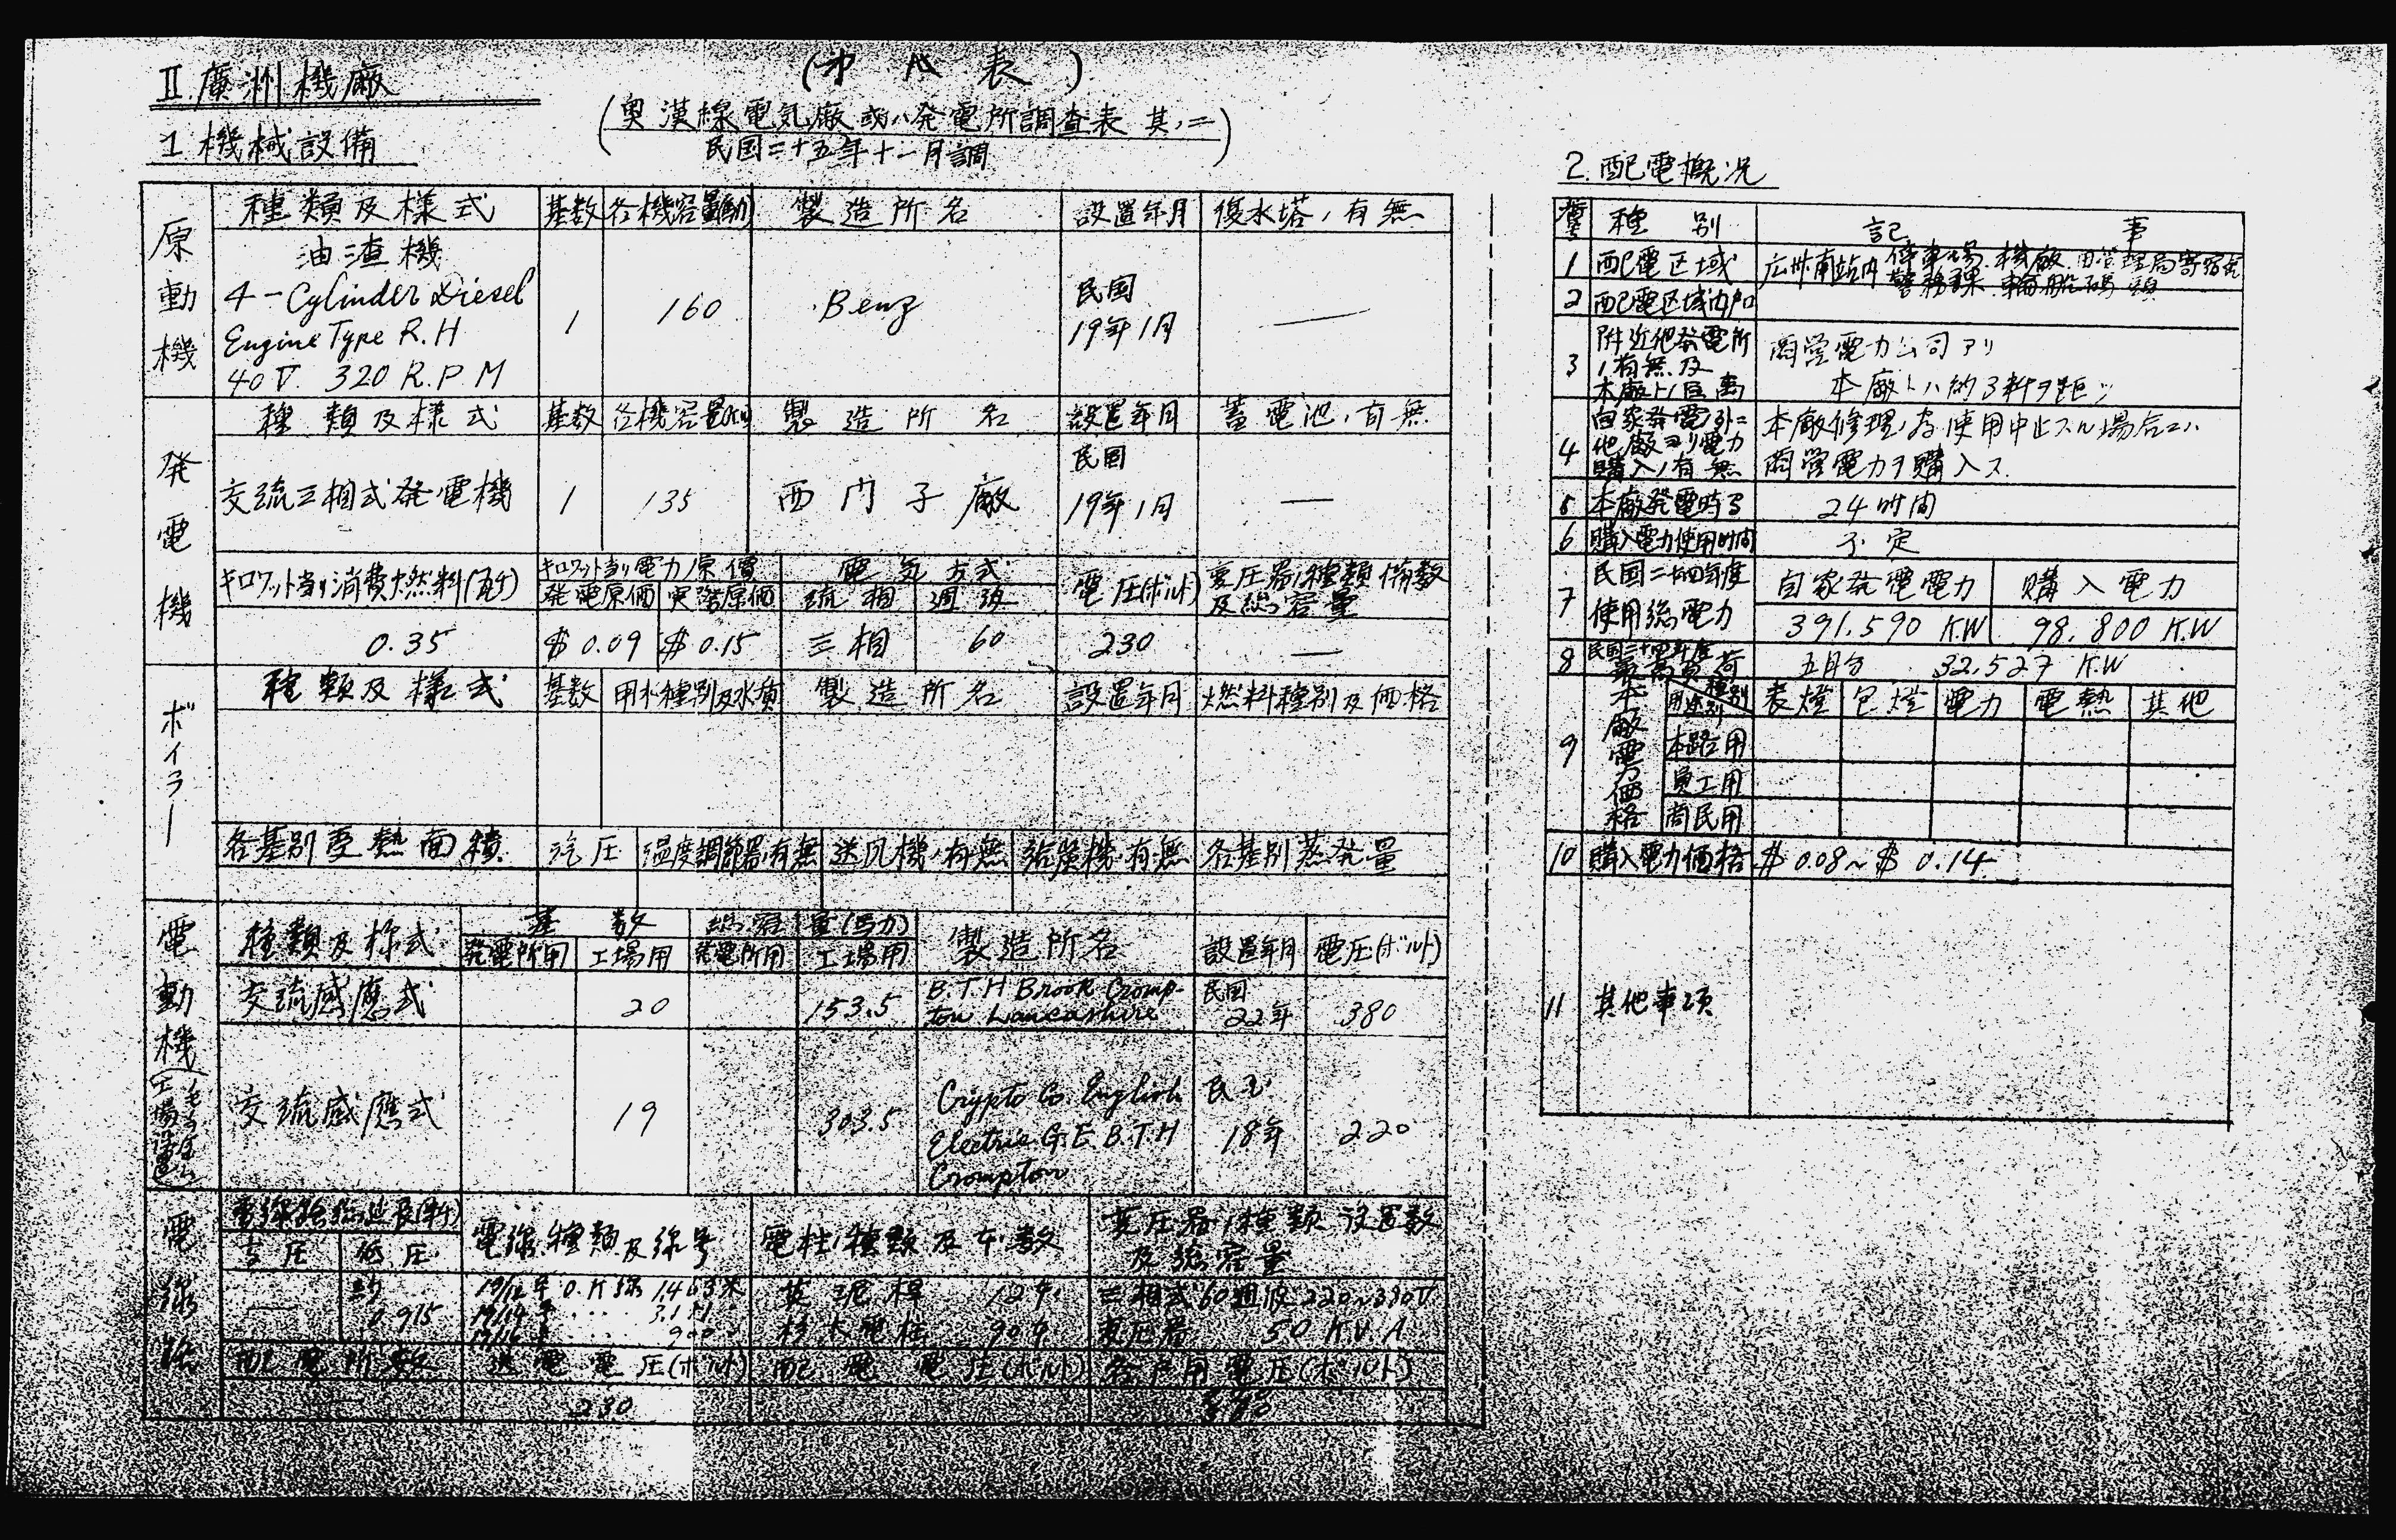 II.廣洲機廠
(第八表)
1 機械設備
(奥漢線電気廠或ハ発電所調査表 其ノ二)
民国二十五年十一月調
原動機
種類及様式 基数 各機容量 製造所名 設置年月 復水塔ノ有無
油渣機
4-Cylinder Diesel
Engine Type R.H
40 V. 320 R.P.M
1 160 Benz 民国 19年1月 —
発電機
種類及様式 基数 各機容量(KW) 製造所名 設置年月 蓄電池ノ有無
交流三相式発電機 1 135 西門子廠 民国 19年1月 —
キロワット当リ消費燃料(瓩) キロワット当リ電力ノ原價 電気方式 電圧(ボルト) 変圧器ノ種類 備数
発電原価 実際原価 流相 週波 及総容量
0.35 $0.09 $0.15 三相 60 230 —
ボイラー
種類及様式 基数 用水種別及水質 製造所名 設置年月 燃料種別及価格
各基別受熱面積 汽圧 温度調節器ノ有無 送風機ノ有無 給炭機ノ有無 各基別蒸発量
電動機
種類及様式 基数 総容量(馬力) 製造所名 設置年月 電圧(ボルト)
発電所用 工場用 発電所用 工場用
交流感應式 20 153.5 B.T.H Brook Cromp-
ton Lancashire 民国 22年 380
交流感應式 19 303.5 Crypto Co. English
Electric G.E. B.T.H
Crompton 民国 18年 220
電線路
電線路総延長(粁) 電線ノ種類及線号 電柱ノ種類及本数 変圧器ノ種類 設置数
高圧 低圧 及総容量
— 約 0.915
19/12 号 O.K線
19/14 号
19/16 号 900
12本
杉木電柱 90本
三相式 60週波 220~380V
変圧器 50 KV.A
配電所数 送電電圧(ボルト) 配電電圧(ボルト) 各戸用電圧(ボルト)
— 230
2. 配電概況
番号 種別 記事
1 配電区域 広州南站内 停車場 機廠 管理局寄宿舎
警務課 輪船碼頭
2 配電区域内戸口
3 附近他発電所
ノ有無及
本廠トノ距離
商営電力公司アリ
本廠トハ約3粁ヲ距ツ
4 自家発電ノ外ニ
他廠ヨリ電力
購入ノ有無
本廠修理ノ為使用中止スル場合ニハ
商営電力ヲ購入ス.
5 本廠発電時間 24時間
6 購入電力使用時間 不定
7 民国二十四年度
使用総電力
自家発電電力 購入電力
391.590 KW 98.800 K.W
8 民国二十四年度
最高負荷 五月分 32.527 K.W
9 本廠電力価格
種別
用途別 表燈 包燈 電力 電熱 其他
本路用
員工用
商民用
10 購入電力価格 $0.08~$0.14
11 其他事項